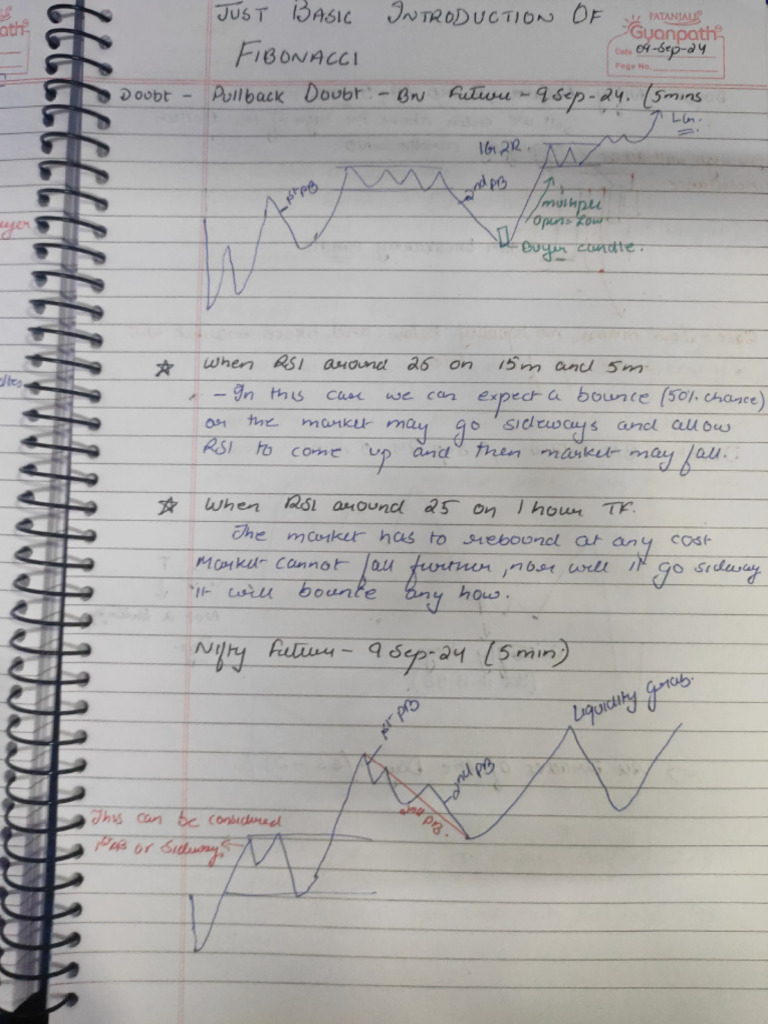 JUST BASIC INTRODUCTION OF
FIBONACCI
PATANJALI
Gyanpath
Date 09-Sep-24
Page No.
Doubt - Pullback Doubt - BN Future - 9 Sep-24. (5mins
LG.
1G 2R.
1st PB
2nd PB
multiple
Open = Low
Buyer candle.
☆ When RSI around 25 on 15m and 5m
- In this case we can expect a bounce (50% chance)
or the market may go sideways and allow
RSI to come up and then market may fall.
☆ When RSI around 25 on 1 hour TF.
The market has to rebound at any cost
Market cannot fall further, nor will it go sideway
it will bounce any how.
Nifty Future - 9 Sep-24 (5min)
1st PB
Liquidity Grab.
2nd PB
2nd PB.
This can be considered
1st PB or Sideways